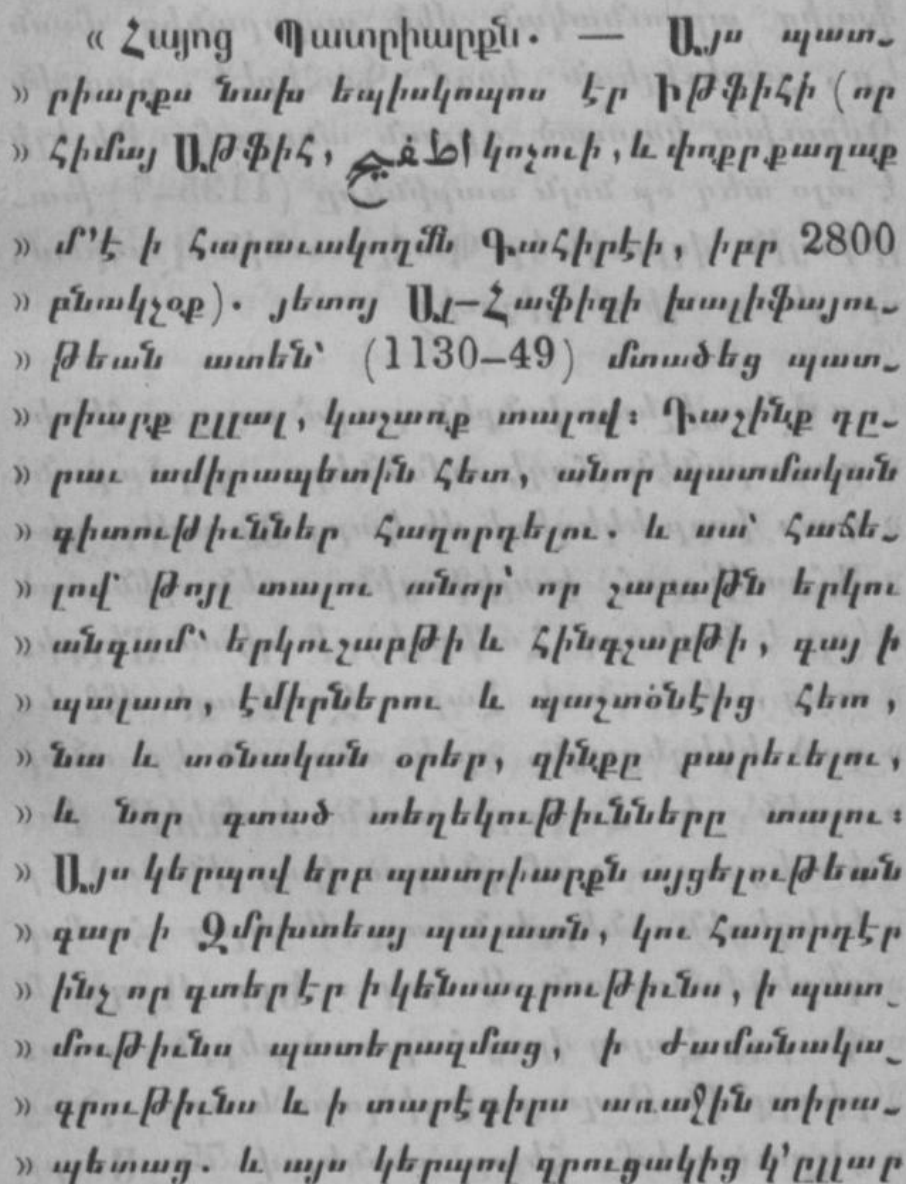 « Հայոց Պատրիարքն. — Այս պատ-
» րիարքս նախ եպիսկոպոս էր Իթֆիհի (որ
» հիմայ Աթֆիհ, اطفيح կոչուի, և փոքր քաղաք
» մ’է ի հարաւակողմն Գահիրէի, իբր 2800
» բնակչօք). յետոյ Ալ-Հաֆիզի խալիֆայու-
» թեան ատեն՝ (1130-49) մտածեց պատ-
» րիարք ըլլալ, կաշառք տալով։ Դաշինք դը-
» րաւ ամիրապետին հետ, անոր պատմական
» գիտութիւններ հաղորդելու. և սա՝ հաճե-
» լով՝ թոյլ տալու անոր՝ որ շաբաթն երկու
» անգամ՝ երկուշարթի և հինգշարթի, գայ ի
» պալատ, էմիրներու և պաշտօնէից հետ,
» նա և տօնական օրեր, զինքը բարեւելու,
» և նոր գտած տեղեկութիւնները տալու։
» Այս կերպով երբ պատրիարքն այցելութեան
» գար ի Զմրխտեայ պալատն, կու հաղորդէր
» ինչ որ գտեր էր ի կենսագրութիւնս, ի պատ-
» մութիւնս պատերազմաց, ի ժամանակա-
» գրութիւնս և ի տարէգիրս առաջին տիրա-
» պետաց. և այս կերպով զրուցակից կ’ըլլար